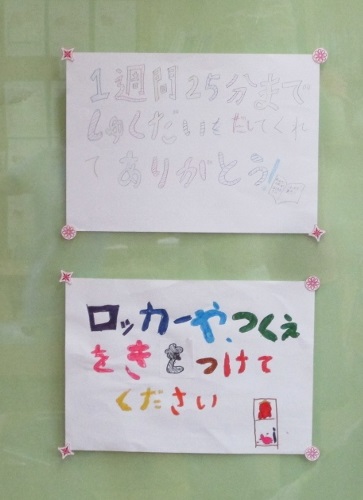 1週間25分まで
しゅくだいをだしてくれ
てありがとう!
ロッカーや、つくえ
をきをつけて
ください